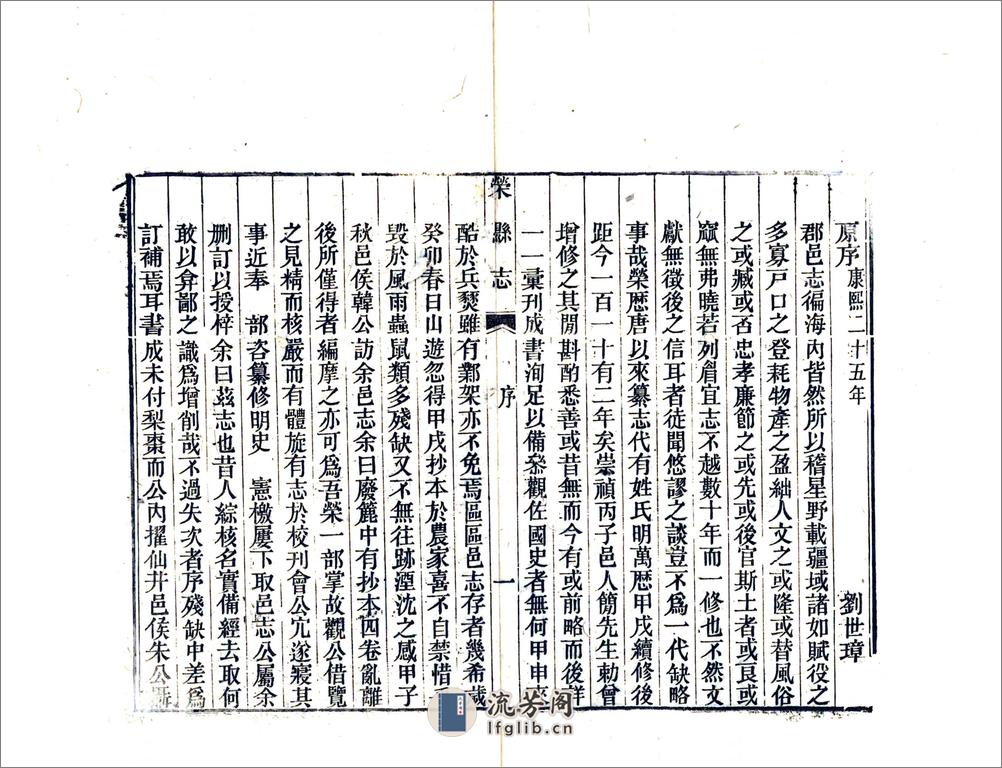 原序康熙二十五年 劉世璋
郡邑志徧海內皆然所以稽星野載疆域諸如賦役之
多寡戸口之登耗物產之盈絀人文之或隆或替風俗
之或臧或否忠孝廉節之或先或後官斯土者或良或
窳無弗曉若列眉宜志不越數十年而一修也不然文
獻無徵後之信耳者徒聞悠謬之談豈不爲一代缺略
事哉榮歷唐以來纂志代有姓氏明萬歷甲戌續修後
距今一百一十有二年矣崇禎丙子邑人簡先生勅曾
增修之其開斟酌悉善或昔無而今有或前略而後詳
一一彙刊成書洵足以備叅觀佐國史者無何甲申
榮縣志 序 一
酷於兵燹雖有鄴架亦不免焉區區邑志存者幾希歲
癸卯春日山遊忽得甲戌抄本於農家喜不自禁惜
毀於風雨蟲鼠類多殘缺又不無往跡湮沈之感甲子
秋邑侯韓公訪余邑志余曰廢簏中有抄本四卷亂離
後所僅得者編摩之亦可爲吾榮一部掌故觀公借覽
之見精而核嚴而有體旋有志於校刊會公冗遂寢其
事近奉 部咨纂修明史 憲檄屢下取邑志公屬余
删訂以授梓余曰茲志也昔人綜核名實備經去取何
敢以弇鄙之識爲增削哉不過失次者序殘缺中差爲
訂補焉耳書成未付梨棗而公內擢仙井邑侯朱公
流芳阁
lfglib.cn